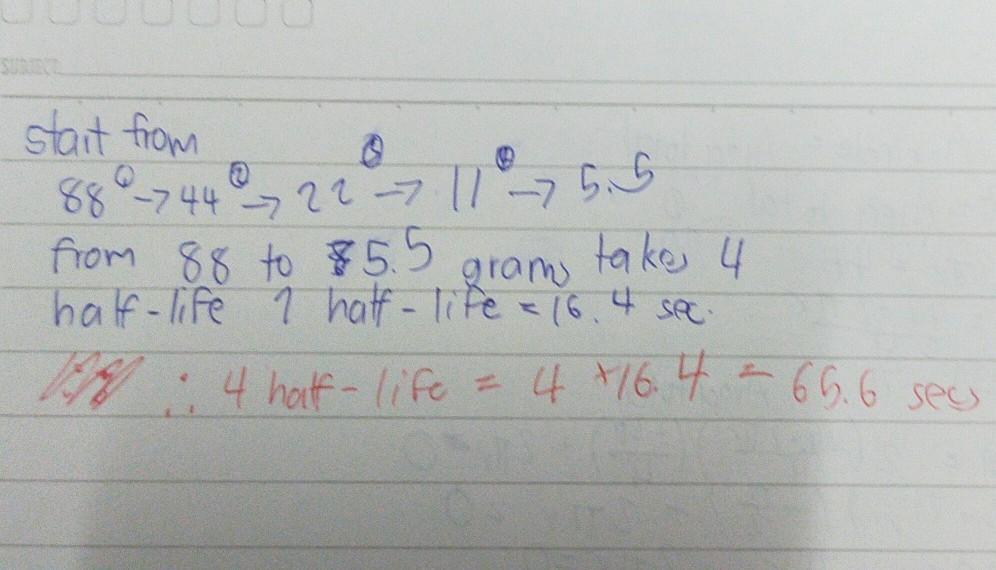 SUBJECT
start from
88 ① → 44 ② → 22 ③ → 11 ④ → 5.5
from 88 to 5.5 grams takes 4
half-life 1 half-life = 16.4 sec.
∴ 4 half-life = 4 × 16.4 = 65.6 secs